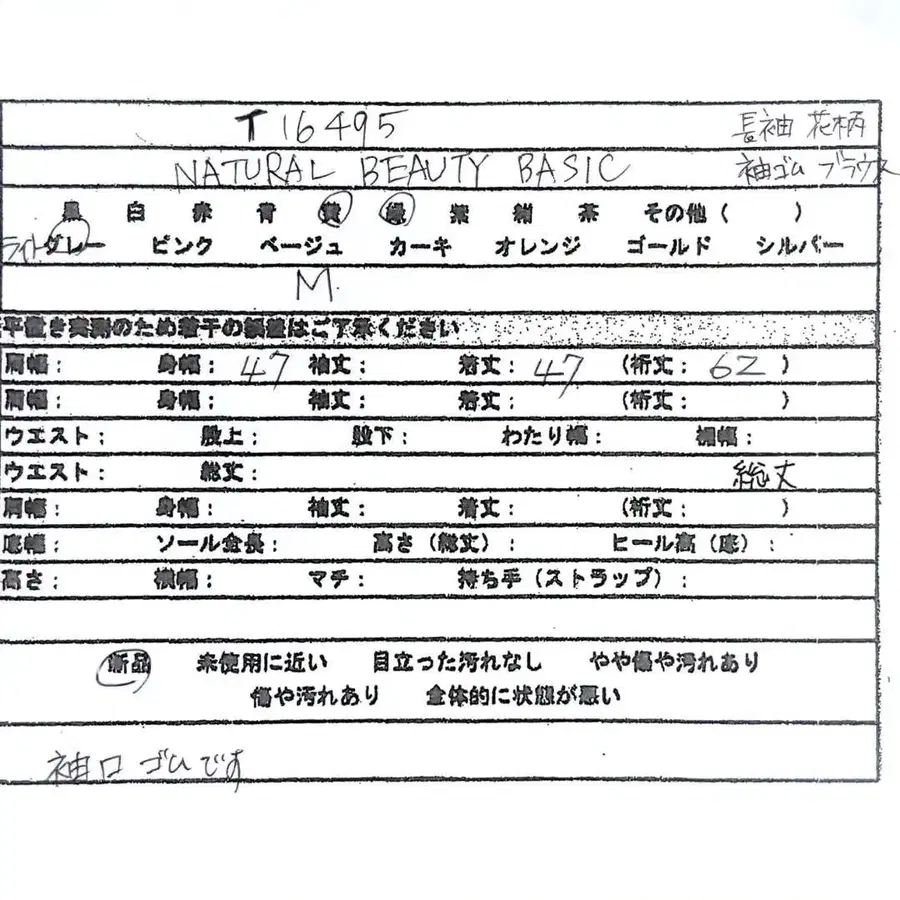 T16495 長袖 花柄
NATURAL BEAUTY BASIC 袖ゴム ブラウス
黒 白 赤 青 黄 緑 紫 紺 茶 その他( )
ライトグレー ピンク ベージュ カーキ オレンジ ゴールド シルバー
M
平置き実測のため若干の誤差はご了承ください
肩幅: 身幅: 47 袖丈: 着丈: 47 (裄丈: 62 )
肩幅: 身幅: 袖丈: 着丈: (裄丈: )
ウエスト: 股上: 股下: わたり幅: 裾幅:
ウエスト: 総丈: 総丈
肩幅: 身幅: 袖丈: 着丈: (裄丈: )
底幅: ソール全長: 高さ(総丈): ヒール高(底):
高さ: 横幅: マチ: 持ち手(ストラップ):
新品 未使用に近い 目立った汚れなし やや傷や汚れあり
傷や汚れあり 全体的に状態が悪い
袖口 ゴムです